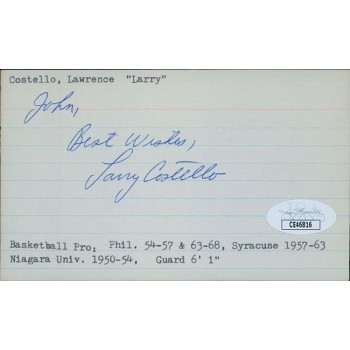 Costello, Lawrence "Larry"
John,
Best Wishes,
Larry Costello
CE46816
Basketball Pro: Phil. 54-57 & 63-68, Syracuse 1957-63
Niagara Univ. 1950-54, Guard 6' 1"